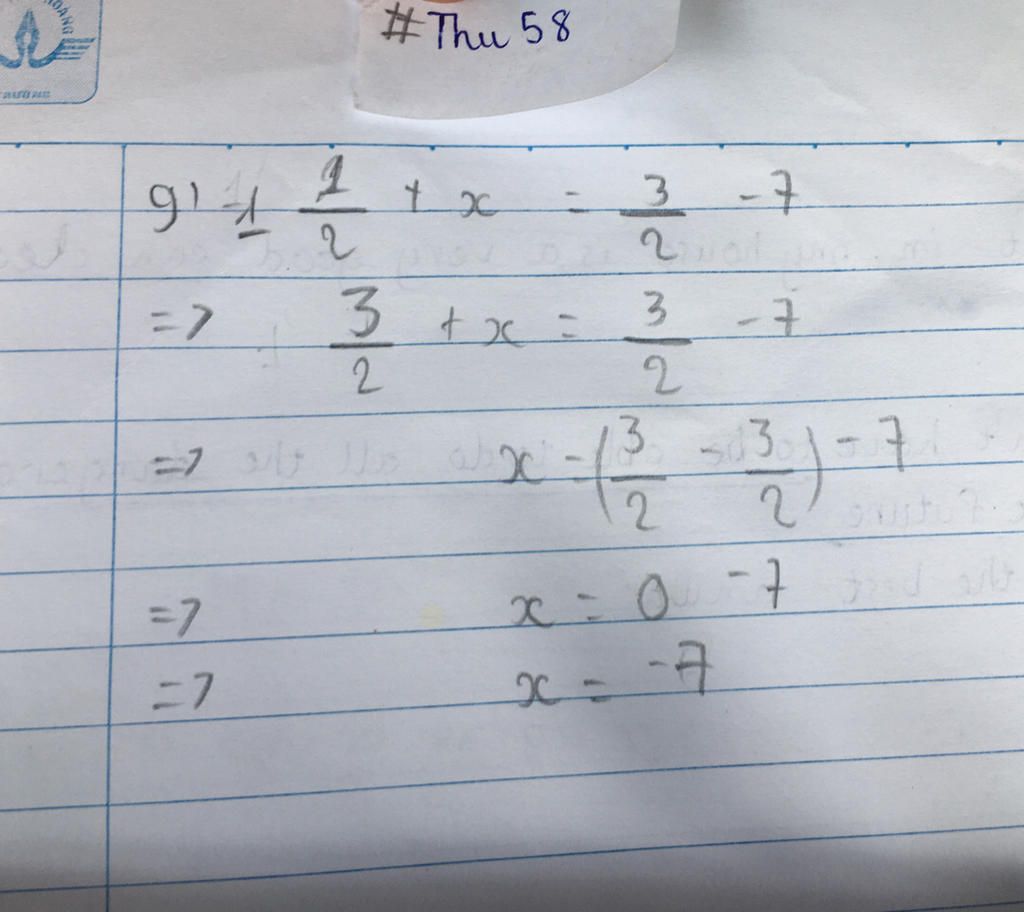 #Thu 58
g) 1 1/2 + x = 3/2 - 7
=> 3/2 + x = 3/2 - 7
=> x = (3/2 - 3/2) - 7
=> x = 0 - 7
=> x = -7